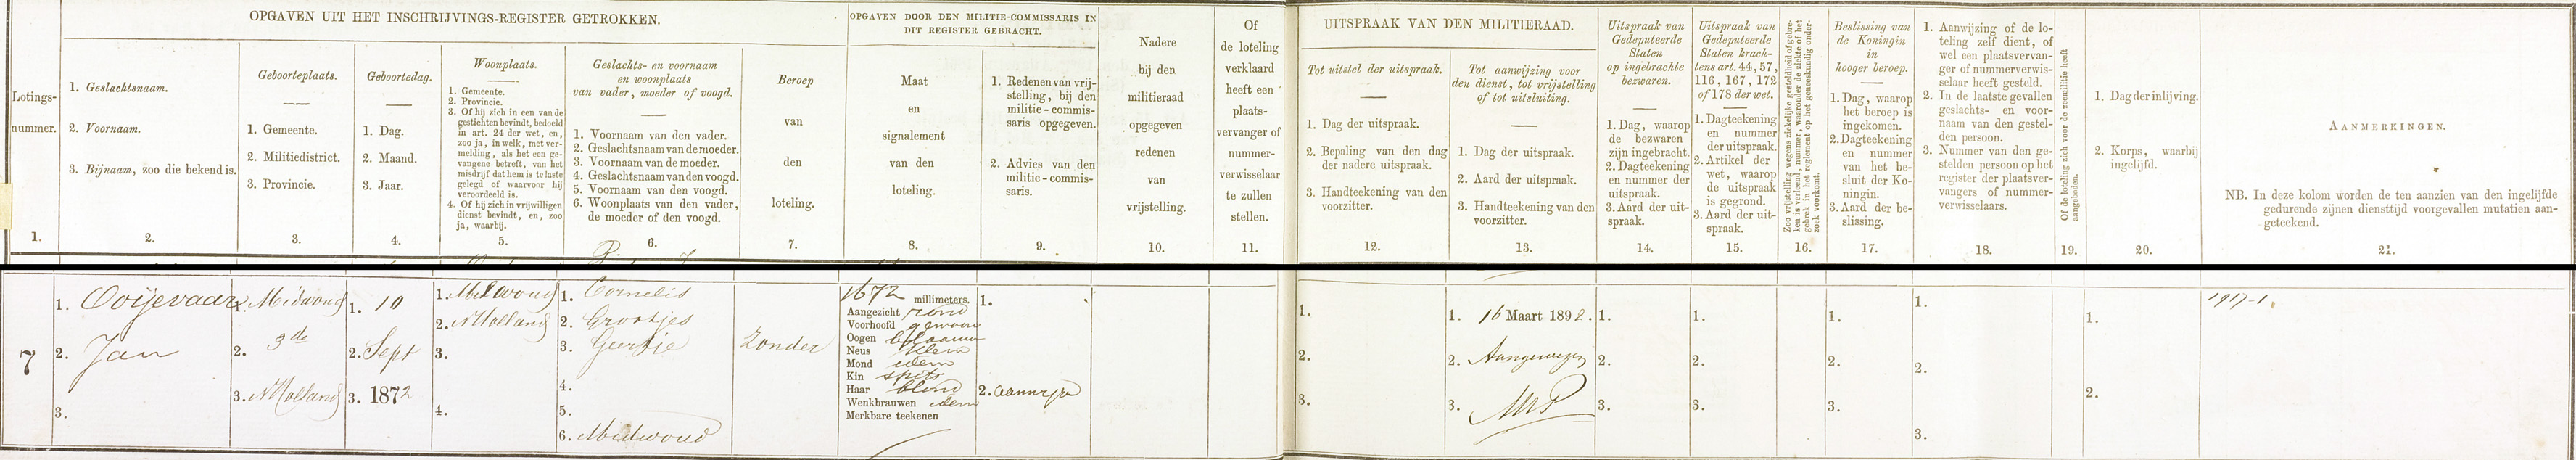 OPGAVEN UIT HET INSCHRIJVINGS-REGISTER GETROKKEN.
Lotings-
nummer.
1.
1. Geslachtsnaam.
2. Voornaam.
3. Bijnaam, zoo die bekend is.
2.
Geboorteplaats.
1. Gemeente.
2. Militiedistrict.
3. Provincie.
3.
Geboortedag.
1. Dag.
2. Maand.
3. Jaar.
4.
Woonplaats.
1. Gemeente.
2. Provincie.
3. Of hij zich in een van de
gestichten bevindt, bedoeld
in art. 24 der wet, en,
zoo ja, in welk, met ver-
melding, als het een ge-
vangene betreft, van het
misdrijf dat hem is te laste
gelegd of waarvoor hij
veroordeeld is.
4. Of hij zich in vrijwilligen
dienst bevindt, en, zoo
ja, waarbij.
5.
Geslachts- en voornaam
en woonplaats
van vader, moeder of voogd.
1. Voornaam van den vader.
2. Geslachtsnaam van de moeder.
3. Voornaam van de moeder.
4. Geslachtsnaam van den voogd.
5. Voornaam van den voogd.
6. Woonplaats van den vader,
de moeder of den voogd.
6.
Beroep
van
den
loteling.
7.
OPGAVEN DOOR DEN MILITIE-COMMISSARIS IN
DIT REGISTER GEBRACHT.
Maat
en
signalement
van den
loteling.
8.
1. Redenen van vrij-
stelling, bij den
militie-commis-
saris opgegeven.
2. Advies van den
militie-commis-
saris.
9.
Nadere
bij den
militieraad
opgegeven
redenen
van
vrijstelling.
10.
Of
de loteling
verklaard
heeft een
plaats-
vervanger of
nummer-
verwisselaar
te zullen
stellen.
11.
UITSPRAAK VAN DEN MILITIERAAD.
Tot uitstel der uitspraak.
1. Dag der uitspraak.
2. Bepaling van den dag
der nadere uitspraak.
3. Handteekening van den
voorzitter.
12.
Tot aanwijzing voor
den dienst, tot vrijstelling
of tot uitsluiting.
1. Dag der uitspraak.
2. Aard der uitspraak.
3. Handteekening van den
voorzitter.
13.
Uitspraak van
Gedeputeerde
Staten
op ingebrachte
bezwaren.
1. Dag, waarop
de bezwaren
zijn ingebracht.
2. Dagteekening
en nummer der
uitspraak.
3. Aard der uit-
spraak.
14.
Uitspraak van
Gedeputeerde
Staten krach-
tens art. 44, 57,
116, 167, 172
of 178 der wet.
1. Dagteekening
en nummer
der uitspraak.
2. Artikel der
wet, waarop
de uitspraak
is gegrond.
3. Aard der uit-
spraak.
15.
Zoo vrijstelling wegens ziekelijke gesteldheid of gebre-
ken is verleend, nummer, waaronder de ziekte of het
gebrek in het reglement op het geneeskundig onder-
zoek voorkomt.
16.
Beslissing van
de Koningin
in
hooger beroep.
1. Dag, waarop
het beroep is
ingekomen.
2. Dagteekening
en nummer
van het be-
sluit der Ko-
ningin.
3. Aard der be-
slissing.
17.
1. Aanwijzing of de lo-
teling zelf dient, of
wel een plaatsvervan-
ger of nummerverwis-
selaar heeft gesteld.
2. In de laatste gevallen
geslachts- en voor-
naam van den gestel-
den persoon.
3. Nummer van den ge-
stelden persoon op het
register der plaatsver-
vangers of nummer-
verwisselaars.
18.
Of de loteling zich voor de zeemilitie heeft
aangeboden.
19.
1. Dag der inlijving.
2. Korps, waarbij
ingelijfd.
20.
AANMERKINGEN.
NB. In deze kolom worden de ten aanzien van den ingelijfde
gedurende zijnen diensttijd voorgevallen mutatien aan-
geteekend.
21.
7
1. Ooijevaar
2. Jan
3.
1. Midwoud
2. 3de
3. NHolland
1. 10
2. Sept
3. 1872
1. Midwoud
2. NHolland
3.
4.
1. Cornelis
2. Grootjes
3. Geertje
4.
5.
6. Midwoud
Zonder
1672 millimeters.
Aangezicht rond
Voorhoofd gewoon
Oogen blaauw
Neus klein
Mond idem
Kin spits
Haar blond
Wenkbrauwen idem
Merkbare teekenen
1.
2.
1.
2.
3.
1. 16 Maart 1892.
2. Aangewezen
3.
1.
2.
3.
1.
2.
3.
1.
2.
3.
1.
2.
3.
1.
2.
1917-1